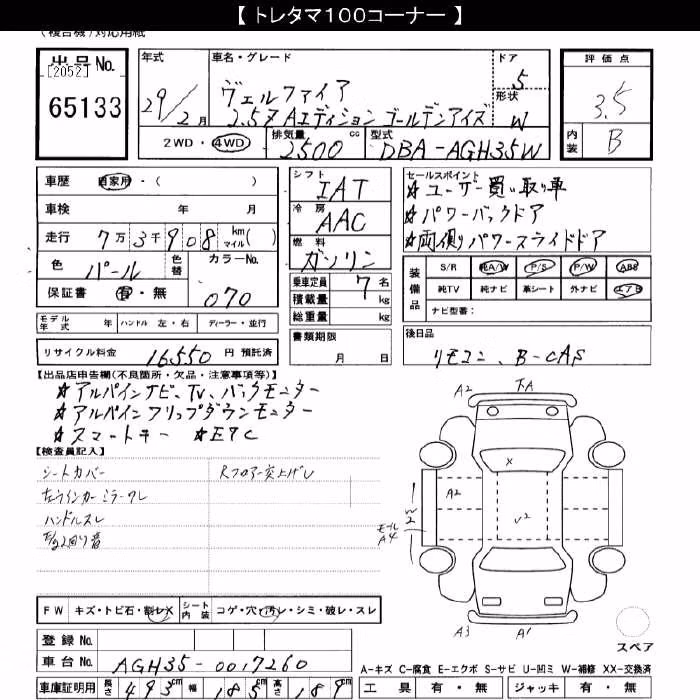 【 トレタマ100コーナー 】
(複合機)対応用紙
出品No.
[2052]
65133
年式 29/2月
車名・グレード ヴェルファイア
2.5Z Aエディション ゴールデンアイズ
ドア 5
形状 W
評価点 3.5
内装 B
2WD・4WD 排気量 2500 cc 型式 DBA-AGH35W
車歴 自家用・( )
車検 年 月
走行 7万3千908 km マイル( )
色 パール 色替 カラーNo. 070
保証書 有・無
モデル年式 年 ハンドル 左・右 ディーラー・並行
リサイクル料金 16550 円 預託済
シフト IAT
冷房 AAC
燃料 ガソリン
乗車定員 7 名
積載量 kg
総重量 kg
書類期限
月 日
セールスポイント
☆ユーザー買い取り車
☆パワーバックドア
☆両側パワースライドドア
装備品 S/R 純A/W P/S P/W ABS
純TV 純ナビ 革シート 外ナビ エアB
ナビ型番:
後日品
リモコン、B-CAS
【出品店申告欄(不良箇所・欠品・注意事項等)】
☆アルパインナビ、TV、バックモニター
☆アルパインフリップダウンモニター
☆スマートキー ☆ETC
【検査員記入】
シートカバー Rフロアー突上げレ
左ウインカーミラーワレ
ハンドルスレ
A2 下A
X
A2
V2
W2
モール A4
A3 A1
スペア
FW キズ・トビ石・割レX シート内装 コゲ・穴・汚レ・シミ・破レ・スレ
登録No.
車台No. AGH35-0017260
車庫証明用 長さ 493cm 幅 185cm 高さ 189cm
A-キズ C-腐食 E-エクボ S-サビ U-凹ミ W-補修 XX-交換済
工具 有・無 ジャッキ 有・無